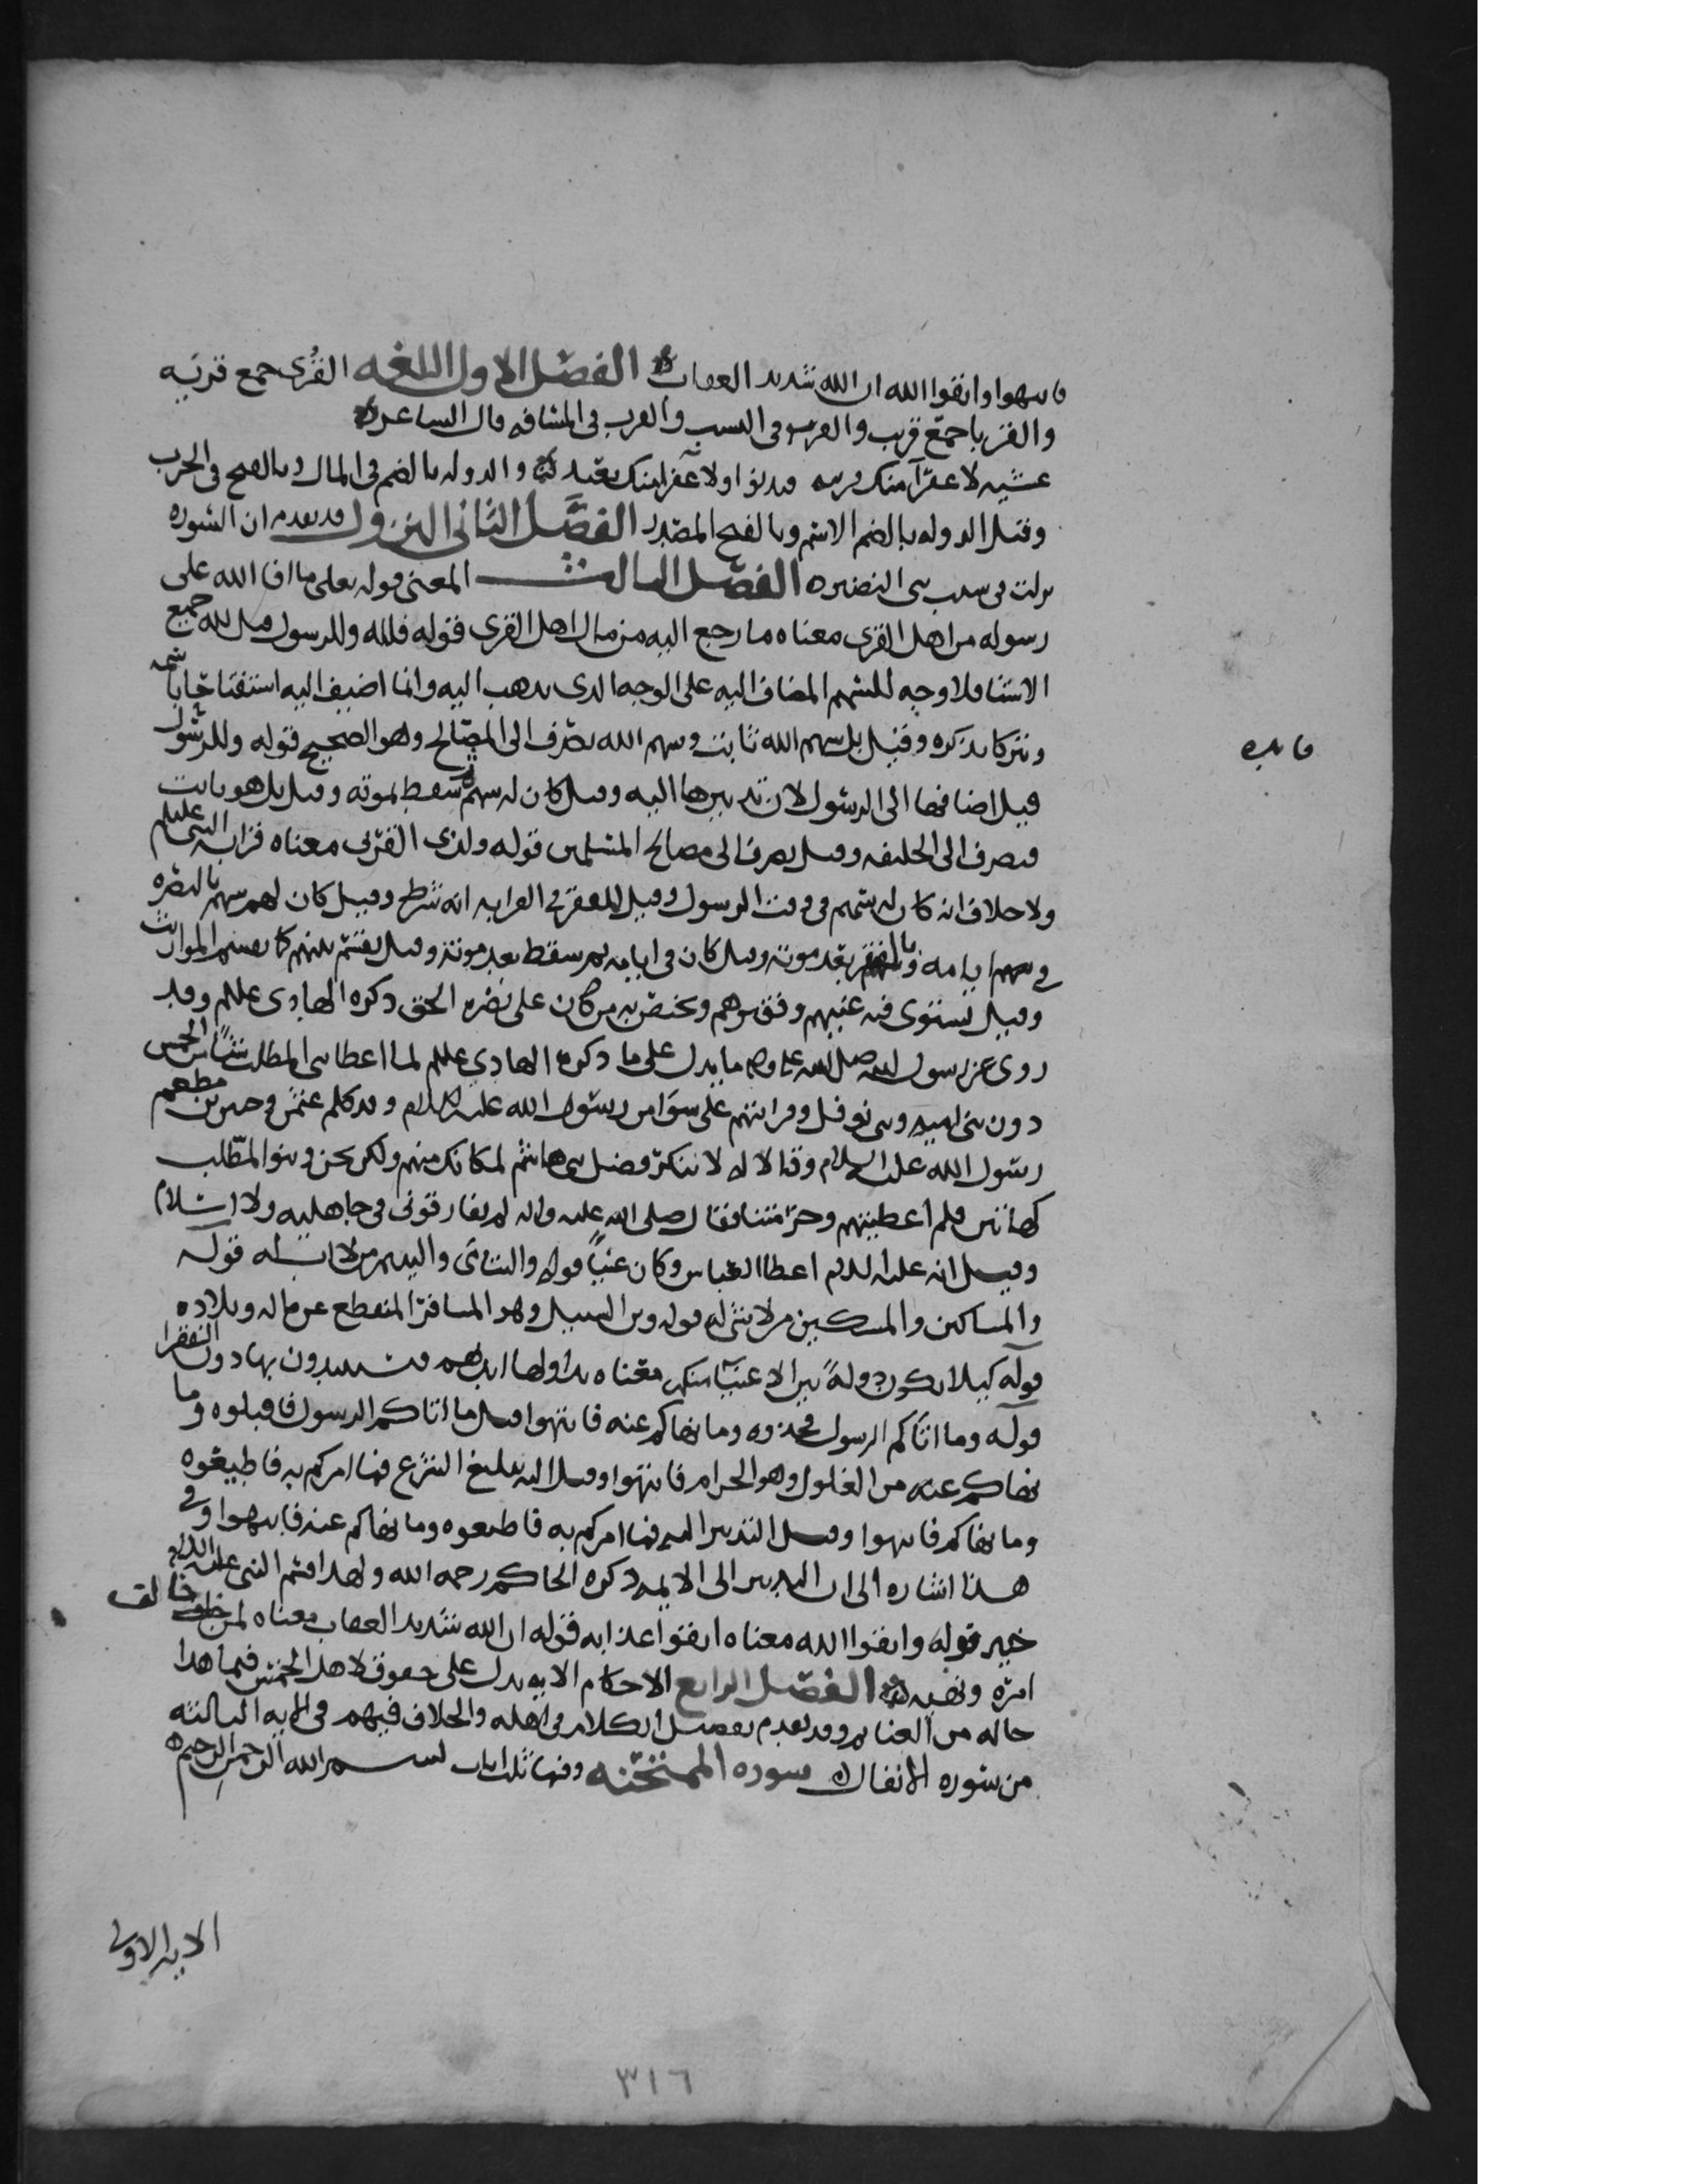 فانتهوا واتقوا الله ان الله شديد العقاب الفصل الاول اللغه القُرى جمع قريه
والقربا جمع قريب والقرب في النسب والقرب في المسافه قال الشاعر
عشيه لا عفرآ منك قريبه فتدنوا ولا عفرا منك بعيد والدوله بالضم في المال وبالفتح في الحرب
وقيل الدوله بالضم الاسم وبالفتح المصدر الفصل الثاني النزول قد تقدم ان السوره
نزلت في سبب بني النضير الفصل الثالث المعنى قوله تعلى ما افا الله على
رسوله من اهل القرى معناه ما رجع اليه من مال اهل القرى قوله فلله وللرسول قيل لله جميع
الاشيا فلا وجه للسهم المضاف اليه على الوجه الدي يدهب اليه وانما اضيف اليه استفتاحا باسمه
وتبركا بذكره وقيل بل سهم الله ثابت وسهم الله يصرف الى المصالح وهو الصحيح قوله وللرسول
قيل اضافها الى الرسول لان تدبيرها اليه وقيل كان له سهم سقط بموته وقيل بل هو ثابت
فيصرف الى الخليفه وقيل يصرف الى مصالح المسلمين قوله ولذي القربى معناه قرابه النبي عليلم
ولا خلاف انه كان لهم سهم في وقت الرسول وقيل الفقر في القرابه انه شرط وقيل كان لهم سهم بالنصره
في ايامه وبالفقر بعد موته وقيل كان في ايامه ثم سقط بعد موته وقيل يقسم بينهم كما يقسم المواريث
وقيل يستوي فيه غنيهم وفقيرهم ويختص به من كان على نصره الحق دكره الهادي عللم وقد
روي عن رسول الله صلى الله عليه واله ما يدل على ما دكره الهادي عللم لما اعطا بني المطلب شيئا من الخمس
دون بني اميه وبني نوفل وقرابتهم على سوا من رسول الله عليه السلام وقد كلم عثمن وجبير بن مطعم
رسول الله عليه السلام وقالا له لا ننكر فضل بني هاشم لمكانك منهم ولكن نحن وبنوا المطلب
كهاتين فلم اعطيتهم وحرمتنا فقال صلى الله عليه واله لم يفارقوني في جاهليه ولا اسلام
وقيل انه عليه السلام اعطا العباس وكان غنيا قوله واليتامى واليتيم من لا اب له قوله
والمساكين والمسكين من لا شي له قوله وبن السبيل وهو المسافر المنقطع عن ماله وبلاده
قوله كيلا يكون دولةً بين الاغنيا منكم معناه يتداولها ايديهم فيستبدون بها دون الفقرا
قوله وما اتاكم الرسول فخذوه وما نهاكم عنه فانتهوا قيل ما اتاكم الرسول فاقبلوه وما
نهاكم عنه من الغلول وهو الحرام فانتهوا وقيل اليه تبليغ الشرع فما امركم به فاطيعوه
وما نهاكم فانتهوا وقيل التدبير اليه فما امركم به فاطيعوه وما نهاكم عنه فانتهوا وفي
هذا اشاره الى ان التدبير الى الايمه دكره الحاكم رحمه الله ولهدا قسم النبي عليه السلام
خيبر قوله واتقوا الله معناه اتقوا عذابه قوله ان الله شديد العقاب معناه لمن خالف
امره ونهيه الفصل الرابع الاحكام الايه يدل على حقوق لاهل الخمس فيما هدا
حاله من الغنايم وقد تقدم تفصيل الكلام في اهله والخلاف فيهم في الايه الثالثه
من سوره الانفال سوره الممتحنه وفيها ثلث ايات بسم الله الرحمن الرحيم
الايه الاولى
فايده
٣١٦